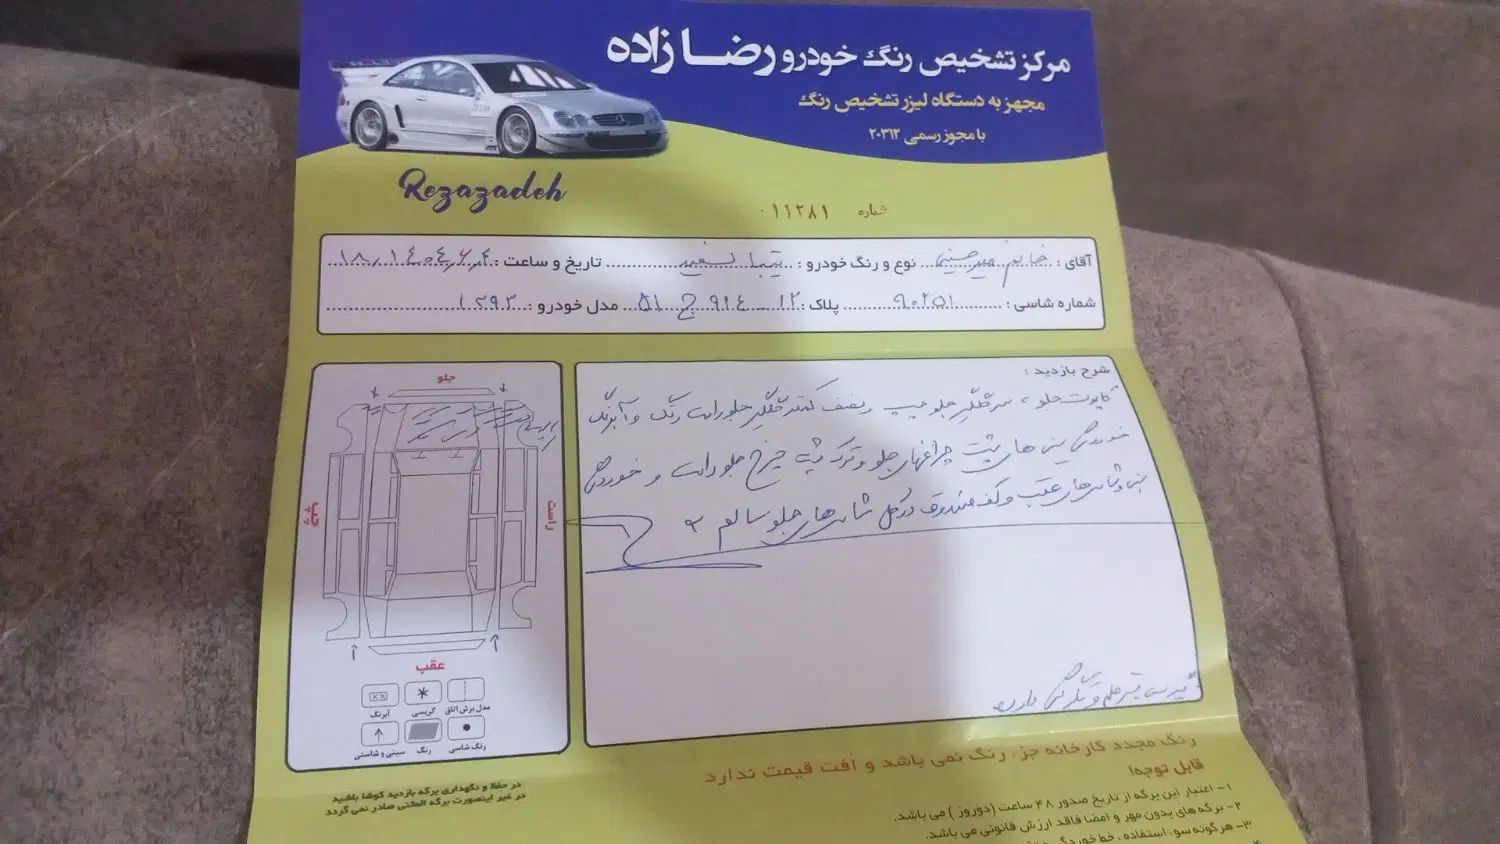 مرکز تشخیص رنگ خودرو رضا زاده
مجهز به دستگاه لیزر تشخیص رنگ
با مجوز رسمی ۲۰۳۱۲
Rezazadeh
شماره ۰۱۱۲۸۱
آقای : خانم میرحسینی نوع و رنگ خودرو : تیبا سفید تاریخ و ساعت : ۱۴۰۴/۶/۴ ۱۸
شماره شاسی : ۹۰۲۵۱ پلاک : ۱۲ - ۹۱۴ ج ۵۱ مدل خودرو : ۱۳۹۳
شرح بازدید :
کاپوت جلو، سرگلگیر جلو چپ و نصف گلگیر جلو راست رنگ و آبرنگ
خوردگی سینی های پشت چراغهای جلو و ترک پشت چرخ جلو راست و خوردگی
سینی و شاسی های عقب و کف صندوق دارد کل شاسی های جلو سالم
دارد
جلو
چپ
راست
عقب
مدل برش اتاق
گریسی
آبرنگ
رنگ شاسی
رنگ
سینی و شاسی
در حفظ و نگهداری برگه بازدید کوشا باشید
در غیر اینصورت برگه المثنی صادر نمی گردد
رنگ مجدد کارخانه جز، رنگ نمی باشد و افت قیمت ندارد
قابل توجه!
۱- اعتبار این برگه از تاریخ صدور ۴۸ ساعت (دوروز) می باشد.
۲- برگه های بدون مهر و امضا فاقد ارزش قانونی می باشد.
۳- هرگونه سو، استفاده ، خط خوردگی